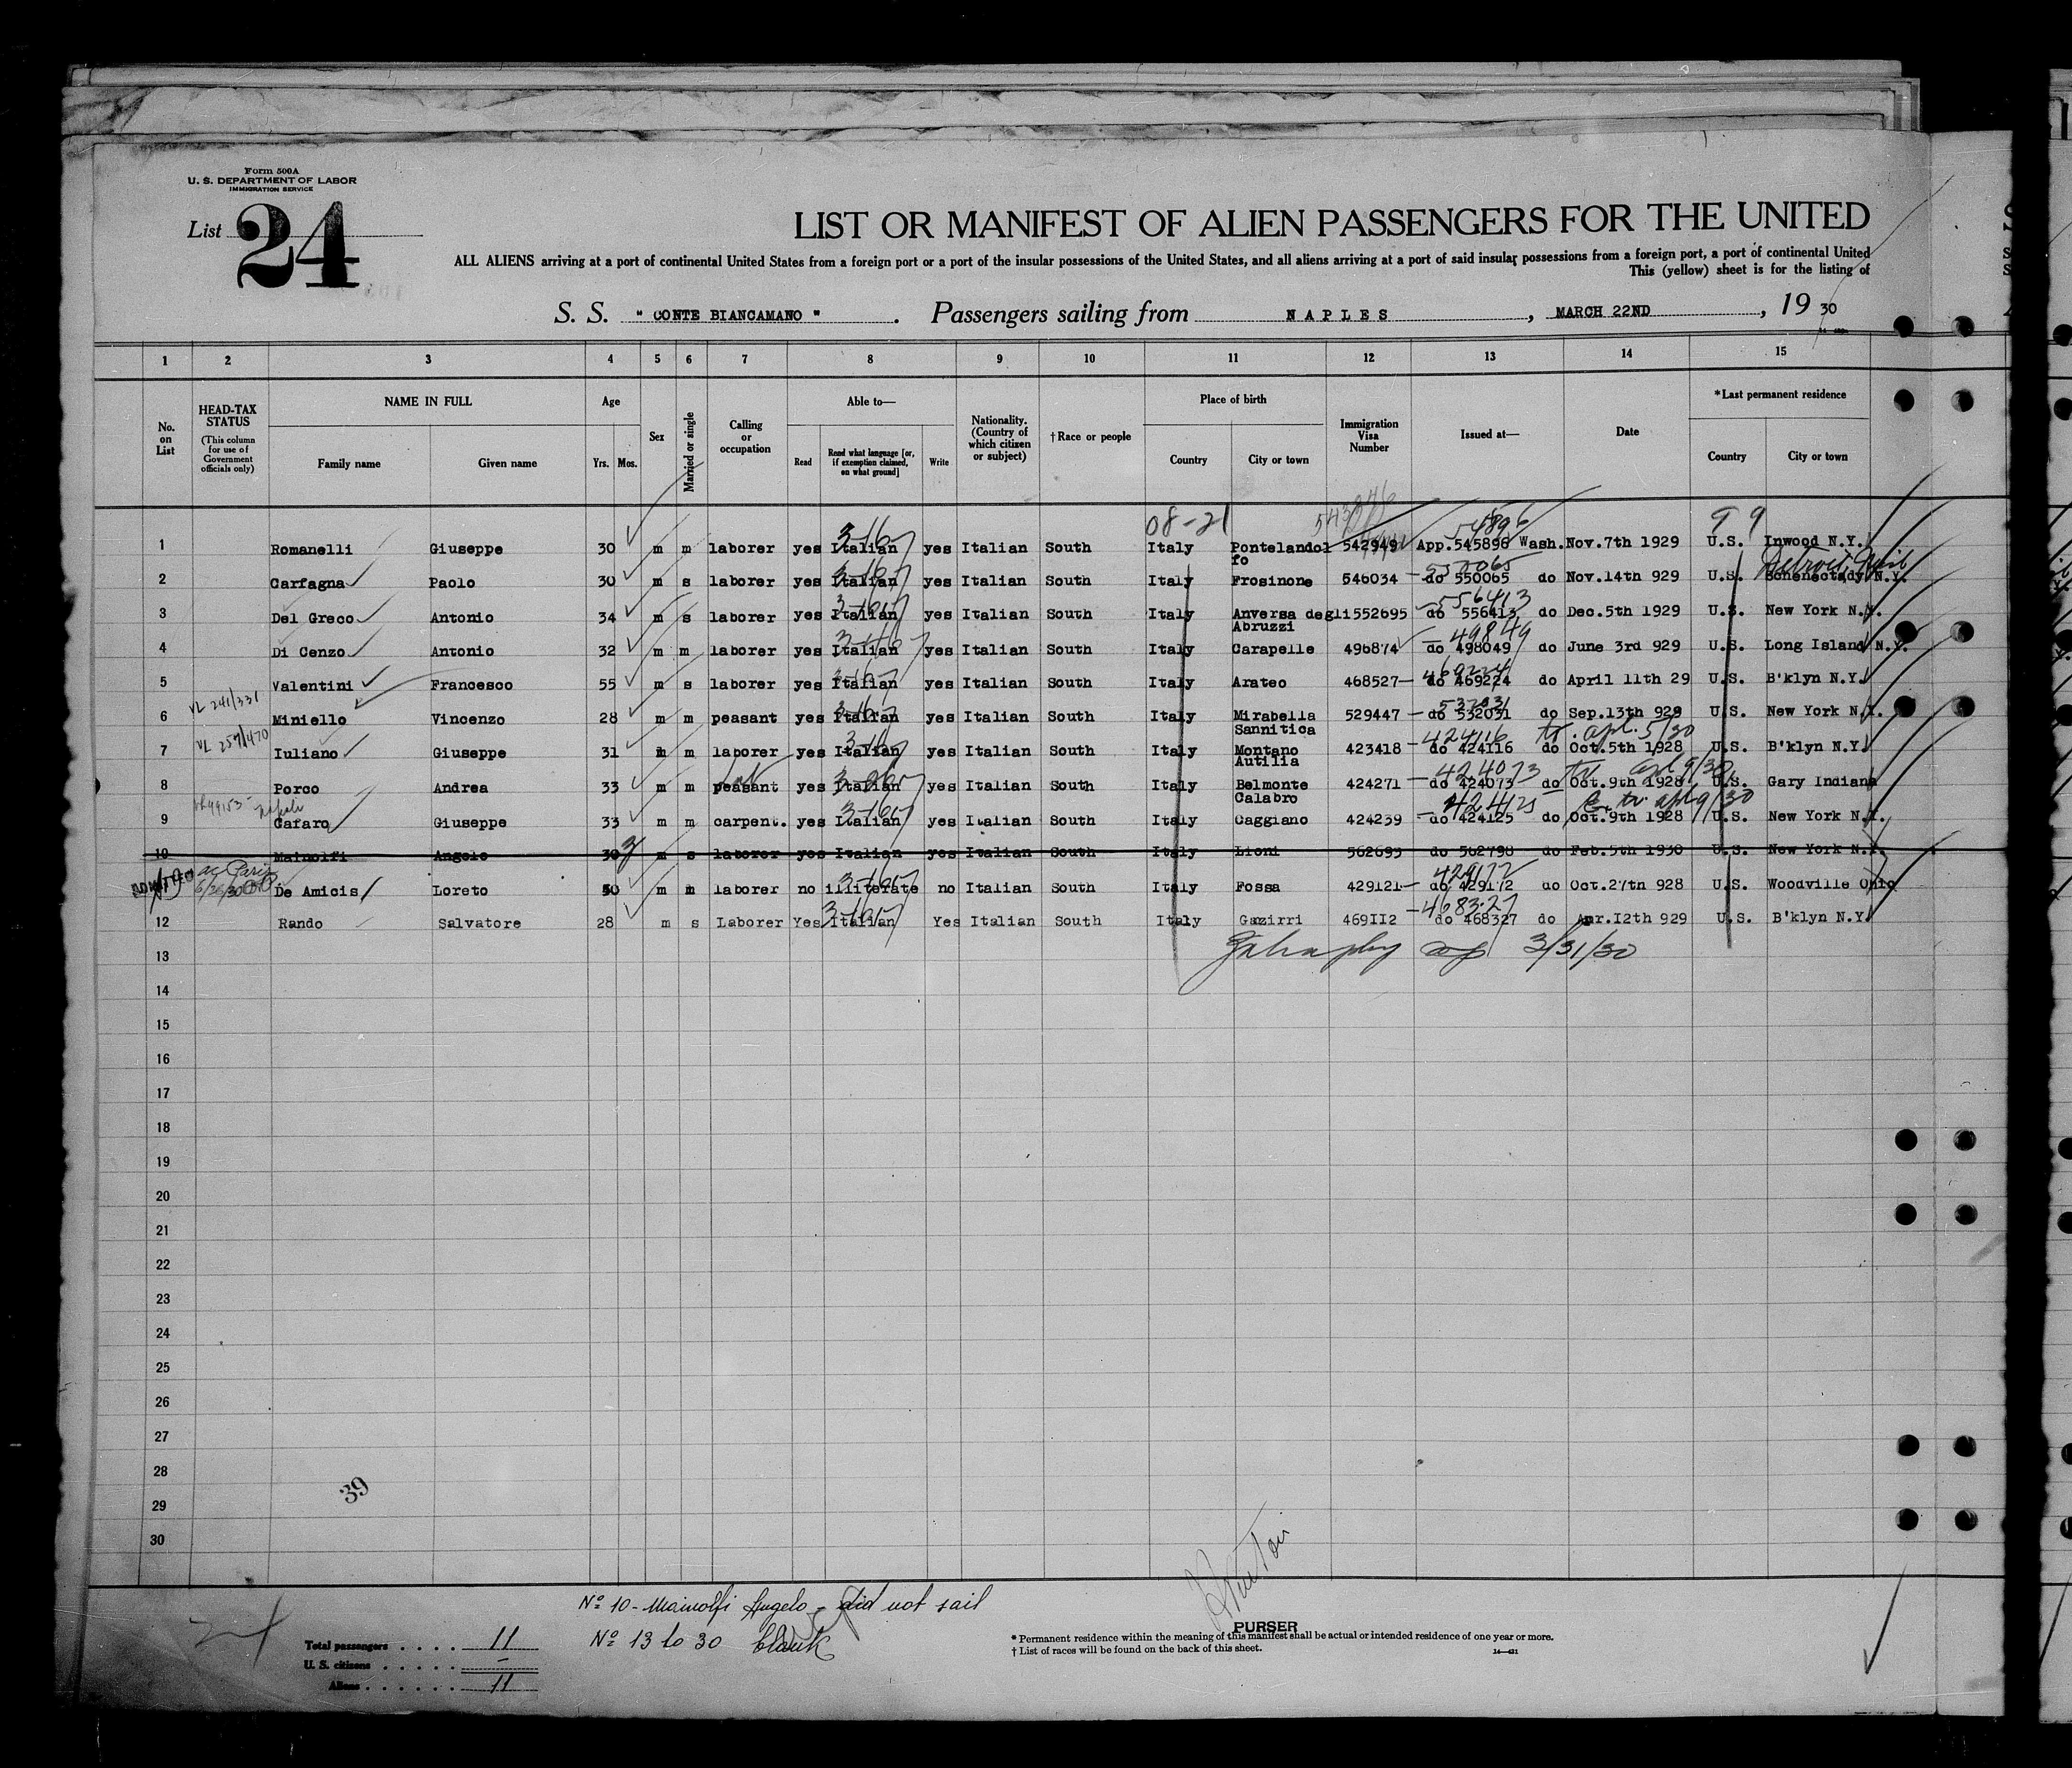 Form 500A
U. S. DEPARTMENT OF LABOR
IMMIGRATION SERVICE
List 24
LIST OR MANIFEST OF ALIEN PASSENGERS FOR THE UNITED
ALL ALIENS arriving at a port of continental United States from a foreign port or a port of the insular possessions of the United States, and all aliens arriving at a port of said insular possessions from a foreign port, a port of continental United
This (yellow) sheet is for the listing of
S. S. " CONTE BIANCAMANO " . Passengers sailing from NAPLES , MARCH 22ND , 19 30
1 2 3 4 5 6 7 8 9 10 11 12 13 14 15
No. on List
HEAD-TAX STATUS (This column for use of Government officials only)
NAME IN FULL
Family name Given name
Age
Yrs. Mos.
Sex
Married or single
Calling or occupation
Able to—
Read
Read what language [or, if exemption claimed, on what ground]
Write
Nationality. (Country of which citizen or subject)
†Race or people
Place of birth
Country City or town
Immigration Visa Number
Issued at—
Date
*Last permanent residence
Country City or town
08-21 99
1 Romanelli Giuseppe 30 m m laborer yes Italian yes Italian South Italy Pontelandol 542949 App.545896 Wash. Nov.7th 1929 U.S. Inwood N.Y.
fo
2 Carfagna Paolo 30 m s laborer yes Italian yes Italian South Italy Frosinone 546034 do 550065 do Nov.14th 929 U.S. Schenectady N.Y.
550065 Detroit
3 Del Greco Antonio 34 m s laborer yes Italian yes Italian South Italy Anversa degli 552695 do 556413 do Dec.5th 1929 U.S. New York N.Y.
Abruzzi 556413
4 Di Cenzo Antonio 32 m m laborer yes Italian yes Italian South Italy Carapelle 496874 do 498049 do June 3rd 929 U.S. Long Island N.Y.
5 Valentini Francesco 55 m s laborer yes Italian yes Italian South Italy Arateo 468527 do 469224 do April 11th 29 U.S. B'klyn N.Y.
VL 241/331
6 Miniello Vincenzo 28 m m peasant yes Italian yes Italian South Italy Mirabella 529447 do 532031 do Sep.13th 929 U.S. New York N.Y.
Sannitica
VL 257/470
7 Iuliano Giuseppe 31 m m laborer yes Italian yes Italian South Italy Montano 423418 do 424116 do Oct.5th 1928 U.S. B'klyn N.Y.
Autilia 424116
8 Porco Andrea 33 m m peasant yes Italian yes Italian South Italy Belmonte 424271 do 424073 do Oct.9th 1928 U.S. Gary Indiana
Calabro 424073
9 Cafaro Giuseppe 33 m m carpent. yes Italian yes Italian South Italy Caggiano 424239 do 424125 do Oct.9th 1928 U.S. New York N.Y.
10 Mainolfi Angelo 30 m s laborer yes Italian yes Italian South Italy Lioni 562695 do 562798 do Feb.5th 1930 U.S. New York N.Y.
De Amicis Loreto 50 m m laborer no illiterate no Italian South Italy Fossa 429121 do 429172 do Oct.27th 928 U.S. Woodville Ohio
429172
12 Rando Salvatore 28 m s Laborer Yes Italian Yes Italian South Italy Gazirri 469II2 do 468327 do Apr.I2th 929 U.S. B'klyn N.Y.
468327
13 3/31/30
14
15
16
17
18
19
20
21
22
23
24
25
26
27
28
29
30
39
Nº 10 - Mainolfi Angelo - did not sail
Nº 13 to 30 blank
Total passengers . . . . 11
U. S. citizens . . . . . -
Aliens . . . . . . 11
PURSER
* Permanent residence within the meaning of this manifest shall be actual or intended residence of one year or more.
† List of races will be found on the back of this sheet.